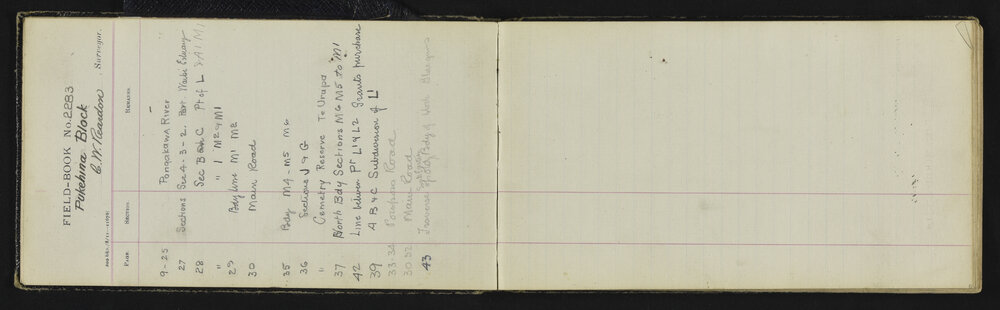 FIELD-BOOK No. 2283
Pukehina Block
C. W. Reardon, Surveyor.
PAGE. SECTION. REMARKS.
9-25 Pongakawa River
27 Sections Sec 4-3-2. Part Waihi Estuary
28 Sec B & C Pt of L & A I M I
" " I M2 & M1
29 Bdy line M1 M2
30 Main Road
35 Bdy M4-M5 M6
36 Sections J & G
" Cemetery Reserve Te Urapa
37 North Bdy Sections M6 M5 to M1
42 Line between Pt L1 & L2 Grants purchase
39 A B & C Subdivision of L1
33-34 Road
30-32 Main Road
43 Traverse of old Bdy & Work